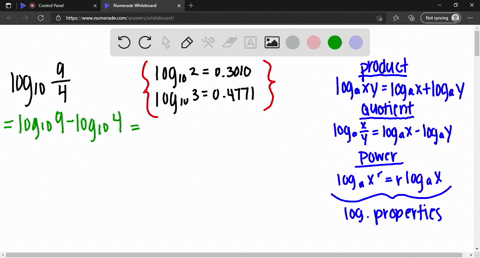 Control Panel
Numerade Whiteboard
https://www.numerade.com/answers/whiteboard/
Not syncing
log₁₀ 9/4
= log₁₀ 9 - log₁₀ 4 =
log₁₀ 2 = 0.3010
log₁₀ 3 = 0.4771
product
logₐ xy = logₐ x + logₐ y
Quotient
logₐ x/y = logₐ x - logₐ y
power
logₐ xʳ = r logₐ x
log. properties